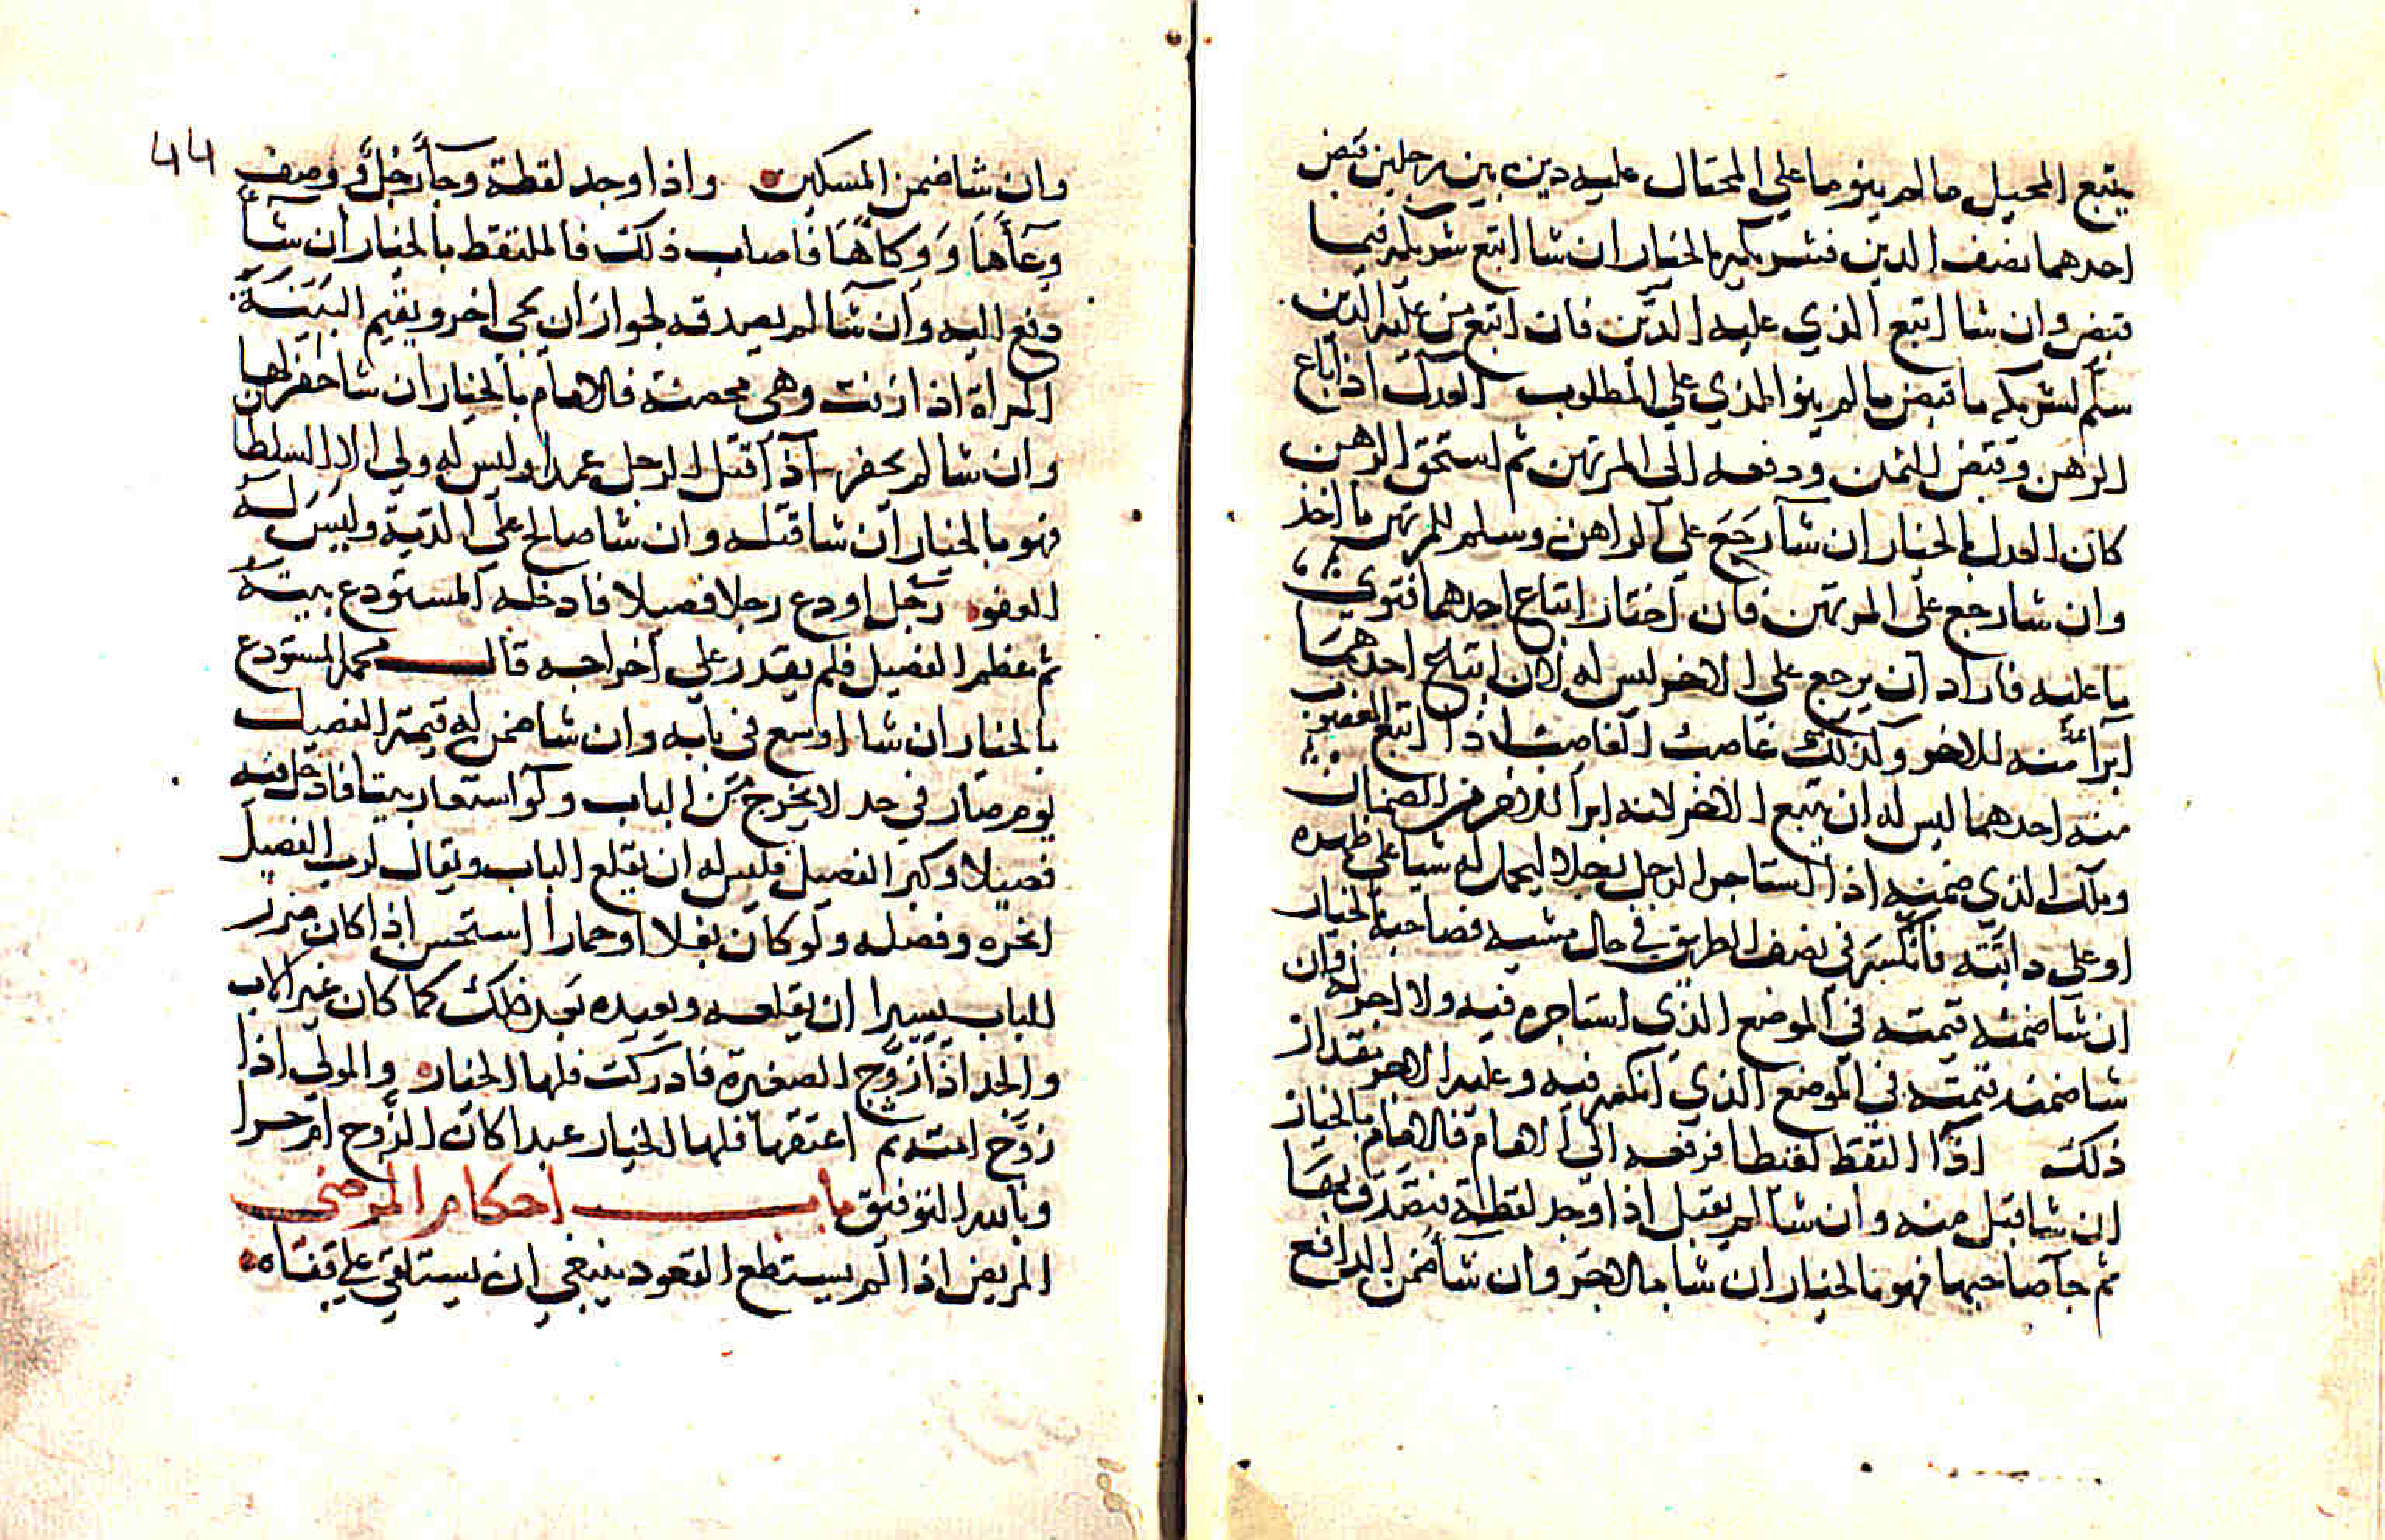 يتبع المحيل مالم ينو ما علي المحتال عليه دين بين رجلين قبض
احدهما نصف الدين فشريكه بالخيار ان شا اتبع شريكه فيما
قبض وان شا اتبع الذي عليه الدين فان اتبع من عليه الدين
سلم لشريكه ما قبض مالم ينو الذي علي المطلوب العدل اذا باع
الرهن وقبض الثمن ودفعه الي المرتهن ثم استحق الرهن
كان العدل بالخيار ان شآ رَجَعَ علي الراهن وسلم للمرتهن ما اخذ
وان شا رجع علي المرتهن فان اختار اتباع احدهما فتوي
ما عليه فاراد ان يرجع علي الاخر ليس له لان اتباع احدهما
ابرا منه للاخر وكذلك غاصب الغاصب اذا اتبع المغصوب
منه احدهما ليس له ان يتبع الاخر لانه ابرا الاخر من الضمان
وملك الذي ضمنه اذا استاجر الرجل رجلا ليحمل له شيا علي ظهره
او علي دابته فانكسر في نصف الطريق في حال مشيه فصاحبه بالخيار
ان شا ضمنه قيمته في الموضع الذي استاجره فيه ولا اجر له وان
شا ضمنه قيمته في الموضع الذي انكسر فيه وعليه الاجر بقدر
ذلك اذا التقط لقيطا فرفعه الي الامام فالامام بالخيار
ان شا قبل منه وان شآ لم يقبل اذا وجد لقطة فتصدق بها
ثم جآ صاحبها فهو بالخيار ان شا بالاجر وان شآ ضمن الدافع
44
وان شا ضمن المسكين واذا وجد لقطة وجآ رَجُلٌ ووصف
وِعَأَهَا وَوِكآهَا فاصاب ذلك فالملتقط بالخيار ان شآ
دفع اليه وان شآ لم يصدقه لجواز ان يجي اخر ويقيم البينة
المراة اذا زنت وهي محصنة فالامام بالخيار ان شا حفر لها
وان شا لم يحفر اذا قتل الرجل عمدا وليس له ولي الا السلطا
فهو بالخيار ان شا قتله وان شا صالح علي الدية وليس له
العفو رجل اودع رجلا فصيلا فادخله المستودع بيته
ثم عظم الفصيل فلم يقدر علي اخراجه قال محمد المستودع
بالخيار ان شا اوسع في بابه وان شا ضمن له قيمة الفصيل
يوم صار في حد لا يخرج من الباب ولو استعار بيتا فادخل فيه
فصيلا وكبر الفصيل فليس له ان يقلع الباب ويقال لرب الفصيل
انحره وفصله ولو كان بغلا او حمارا استحسن اذا كان ضرر
الباب يسيرا ان يقلعه ويعيده بعد ذلك كما كان غير الاب
والجد اذا زوّج الصغيرة فادركت فلها الخيار والمولي اذا
زوّج امته ثم اعتقها فلها الخيار عبدا كان الزوج ام حرا
وبالله التوفيق باب احكام المرضي
المريض اذا لم يستطع القعود ينبغي ان يستلقي علي قفاه